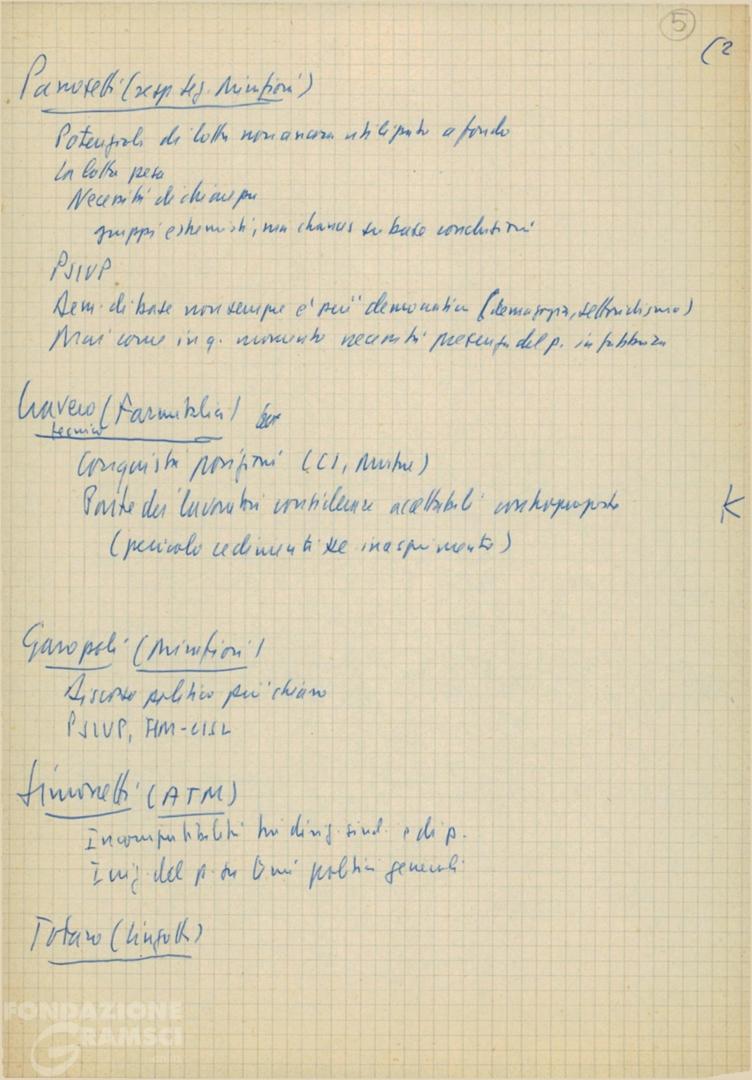 5
(2
Panosetti (resp. seg. Mirafiori)
Potenziale di lotta non ancora utilizzato a fondo
La lotta pesa
Necessità di chiarezza
gruppi estremisti, ma chances su base conclusioni
PSIUP
Dem. di base non sempre è più democratica (demagogia, settorialismo)
Mai come in q. momento necessità presenza del p. in fabbrica
(Farmitalia)
tecnico
Conquista posizioni (CI, Mutue)
Parte dei lavoratori considerare accettabili controproposte
(pericolo cedimenti se inasprimento)
K
Garopoli (Mirafiori)
Discorso politico più chiaro
PSIUP, FIM-CISL
Simonetti (ATM)
Incompatibilità tra dirig. sind. e di p.
Iniz. del p. su temi politici generali
Totaro (Lingotto)
FONDAZIONE
GRAMSCI